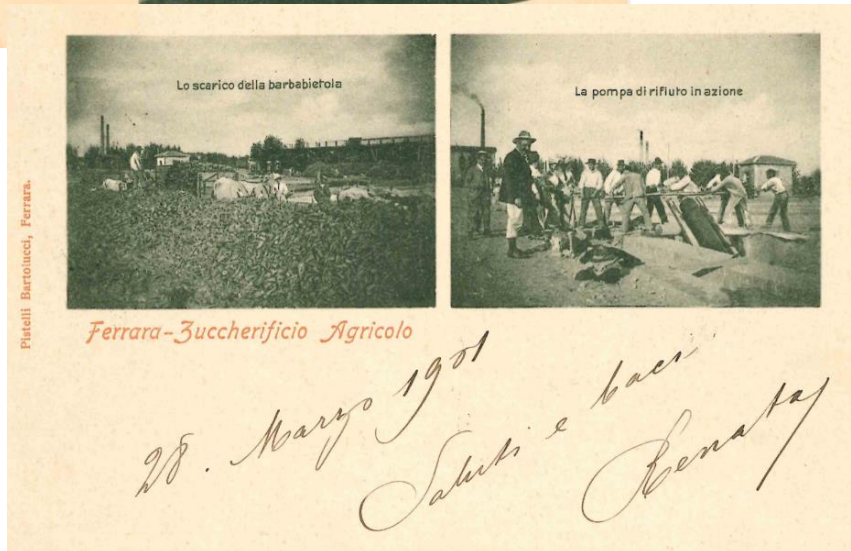 Lo scarico della barbabietola
La pompa di rifiuto in azione
Pistelli Bartolucci, Ferrara.
Ferrara-Zuccherificio Agricolo
28. Marzo 1901
Saluti e baci
Renata